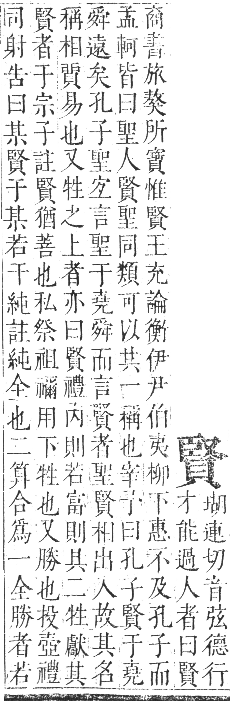 賢
瑚連切音弦德行
才能過人者曰賢
商書旅獒所寶惟賢王充論衡伊尹伯夷柳下惠不及孔子而
孟軻皆曰聖人賢聖同類可以共一稱也宰予曰孔子賢于堯
舜遠矣孔子聖宜言聖于堯舜而言賢者聖賢相出入故其名
稱相貿易也又牲之上者亦曰賢禮內則若富則其二牲獻其
賢者于宗子註賢猶善也私祭祖禰用下牲也又勝也投壺禮
司射告曰某賢于某若干純註純全也二算合為一全勝者若